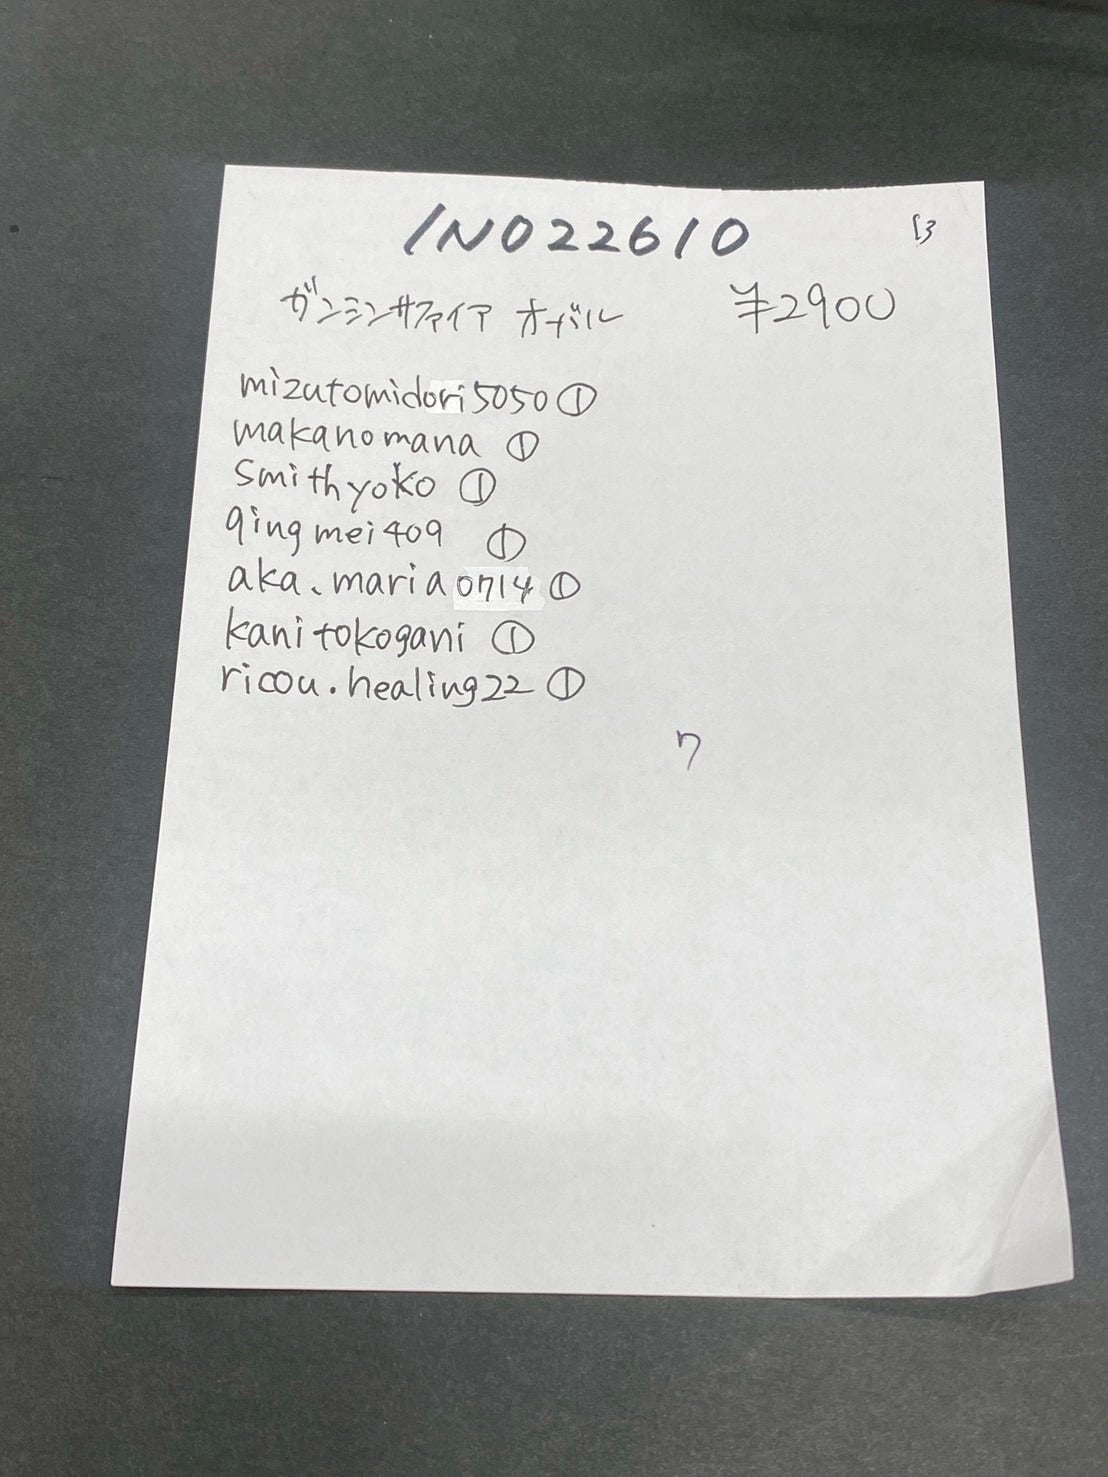 INO22610
13
ガンミンサファイア オーバル ¥2900
mizutomidori5050①
makanomana ①
smithyoko ①
qingmei409 ①
aka.maria0714①
kanitokogani ①
ricou.healing22①
7